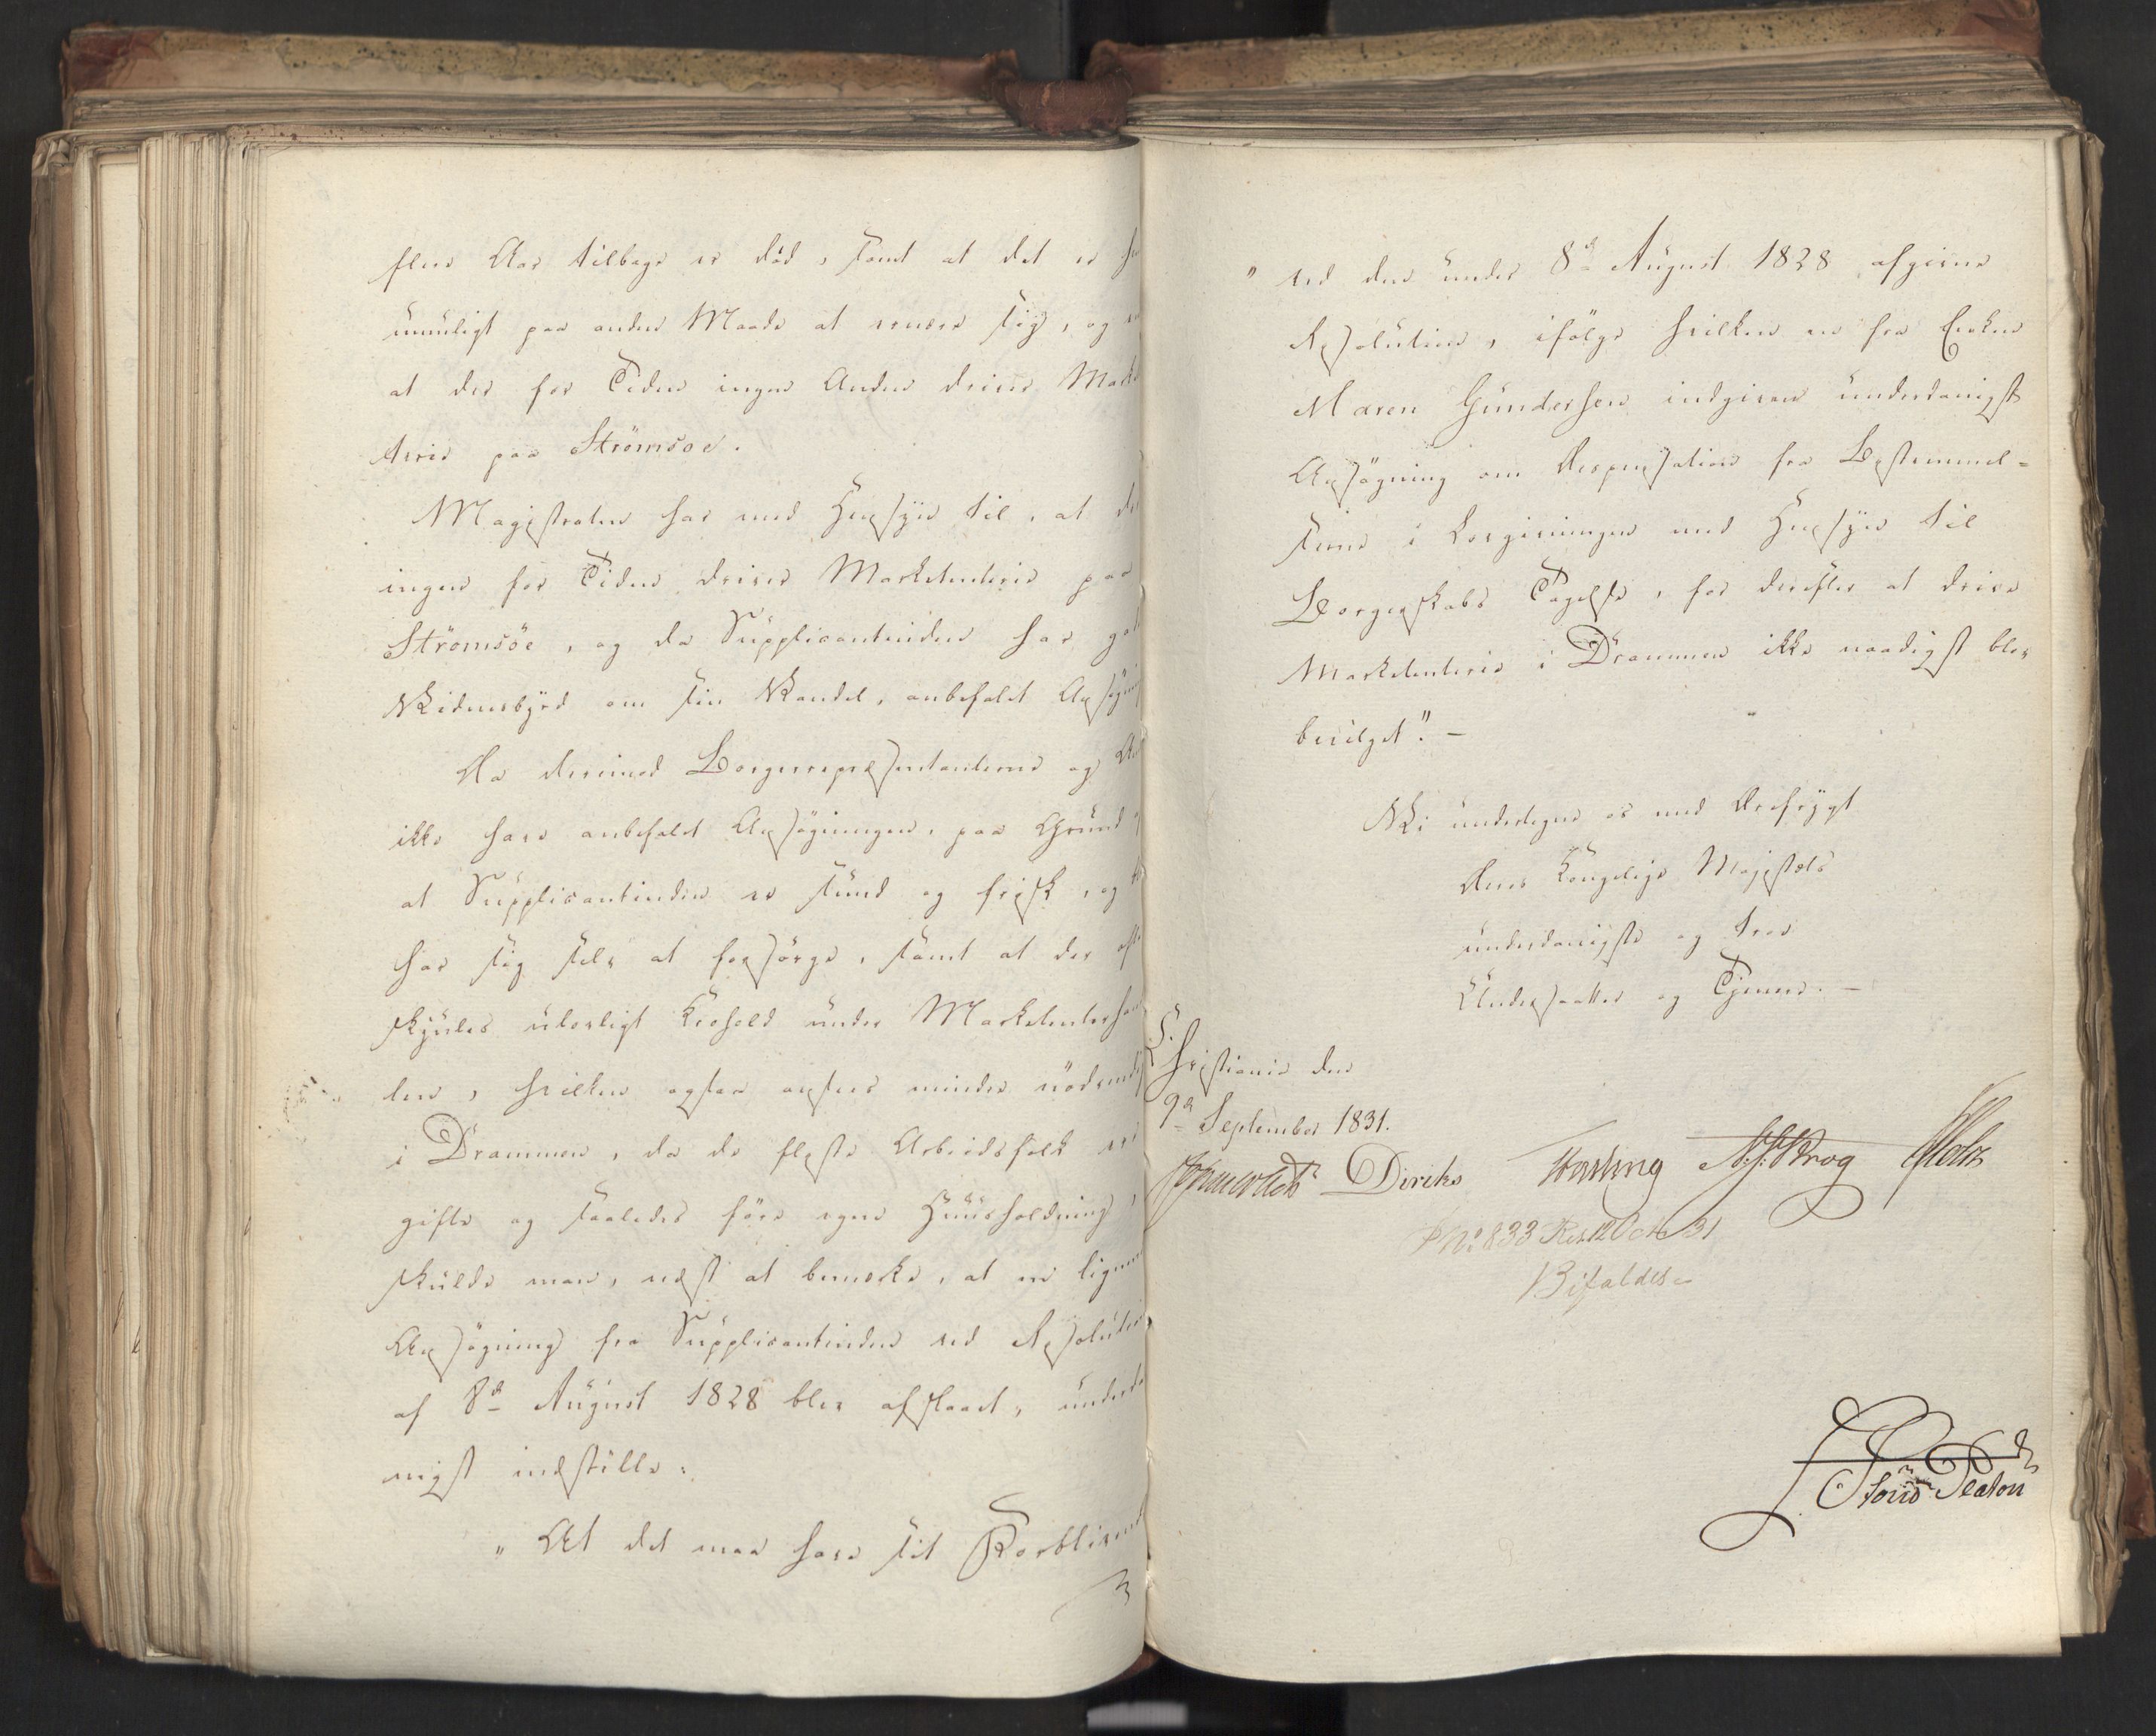 flere Aar tilbage er död, samt at det er
umuligt paa anden Maade at ernære sig, og
at der for Tiden ingen Anden driver Marke
terie paa Strömsöe.
Magistraten har med Hensyn til, at der
ingen for Tiden driver Marketenterie paa
Strömsöe, og da Supplicantinden har godt
Vidnesbyrd om sin Vandel, anbefalet Ansögnin
Da derimod Borgerrepræsentanterne og
ikke have anbefalet Ansögningen, paa Grund af
at Supplicantinden er sund og frisk, og
har sig selv at forsörge, samt at der ofte
skjules ulovligt Krohold under Marketenterhan
len, hvilken ogsaa ansees mindre nödvendig
i Drammen, da de fleste Arbeidsfolk ere
gifte og saaledes före egen Huusholdning,
skulde man, næst at bemærke, at en lignende
Ansögning fra Supplicantinden ved Resolution
af 8de August 1828 blev afslaaet, underda
nigst indstille:
„At det maa have sit Forblivende
„ ved den under 8de August 1828 afgivne
Resolution, ifölge hvilken en fra Enken
Maren Gundersen indgiven underdanigst
Ansögning om Dispensation fra Bestemmel=
serne i Lovgivningen med Hensyn til
Borgerskabs Tagelse, for derefter at drive
Marketenterie i Drammen ikke naadigst blev
bevilget." –
Vi undertegne os med Ærefrygt
Deres Kongelige Majestæts
underdanigste og troe
Undersaatter og Tjenere. –
Christiania den
9de September 1831.
Diriks N.J. Krog Holst
No 833 Res. 12 Octr 31
Bifaldes